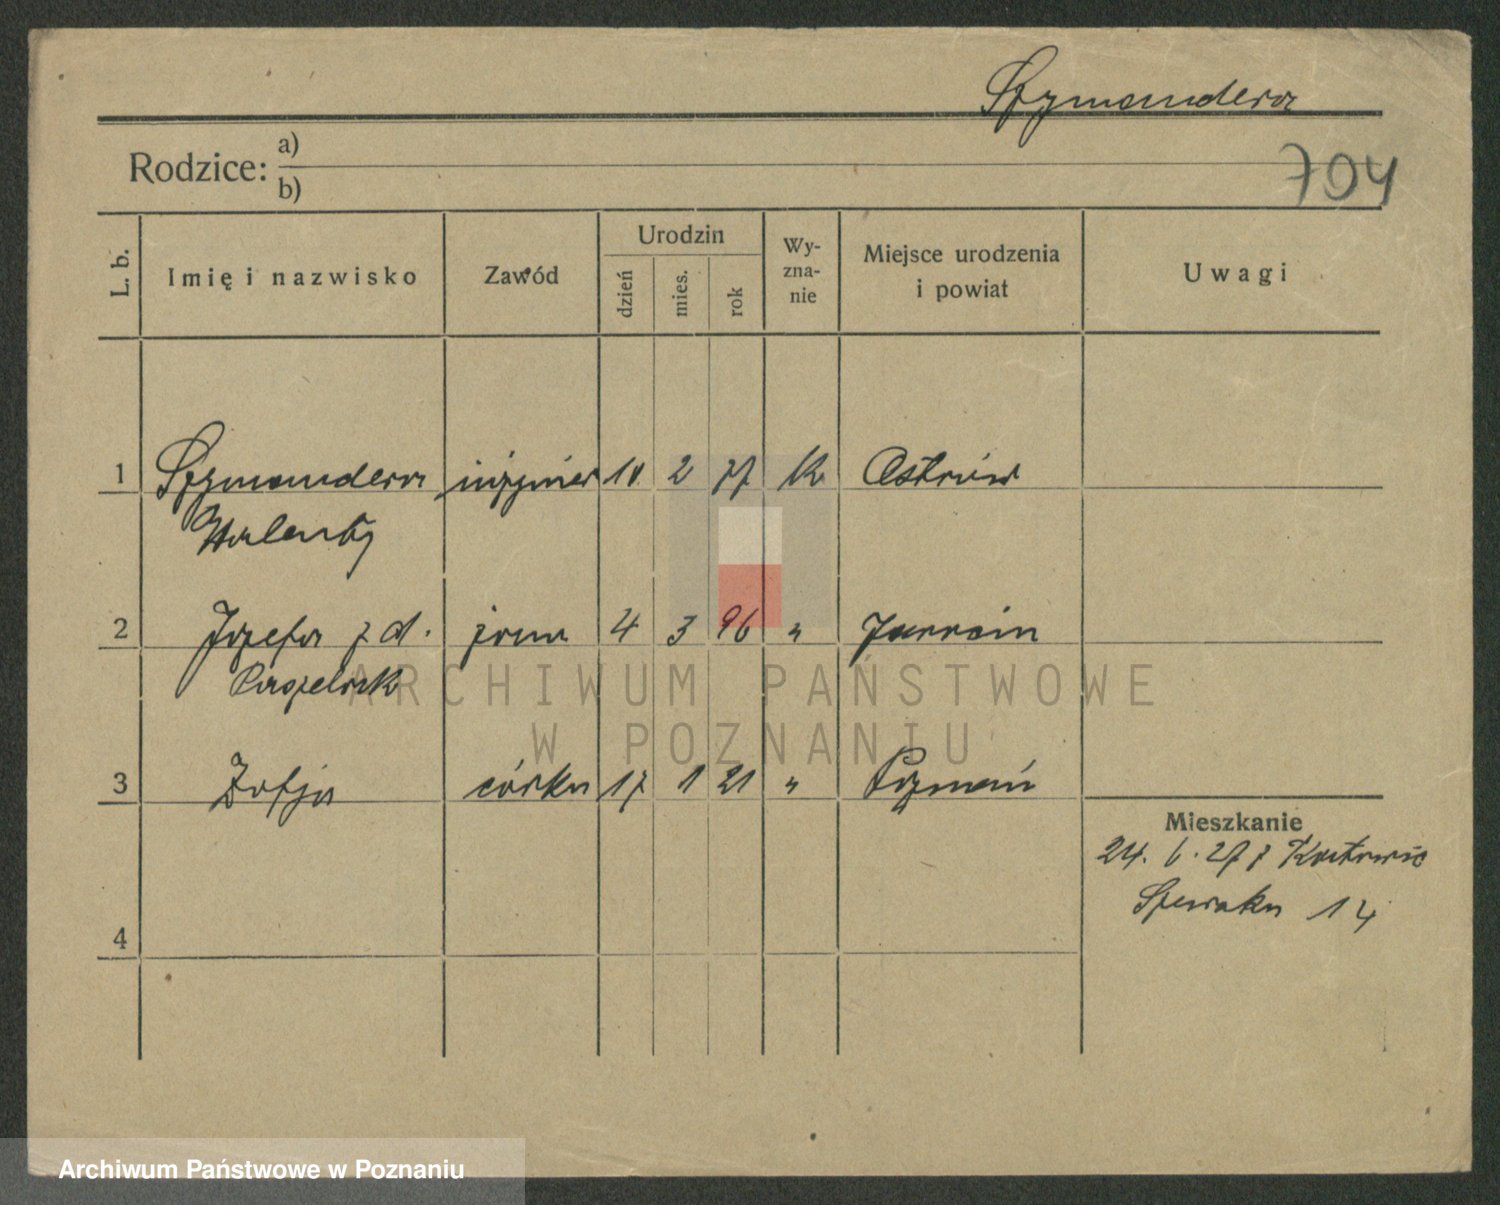 Szymandera
Rodzice: a)
b)
704
L. b. Imię i nazwisko Zawód Urodzin dzień mies. rok Wy-zna-nie Miejsce urodzenia i powiat Uwagi
1 Szymandera inżynier 10 2 77 k Ostrów
Walenty
2 Józefa z d. żona 4 3 96 " Jarocin
3 Zofja córka 17 1 21 " Poznań
Mieszkanie
24. 6. 27 z Katowic
14
4
ARCHIWUM PAŃSTWOWE
W POZNANIU
Archiwum Państwowe w Poznaniu